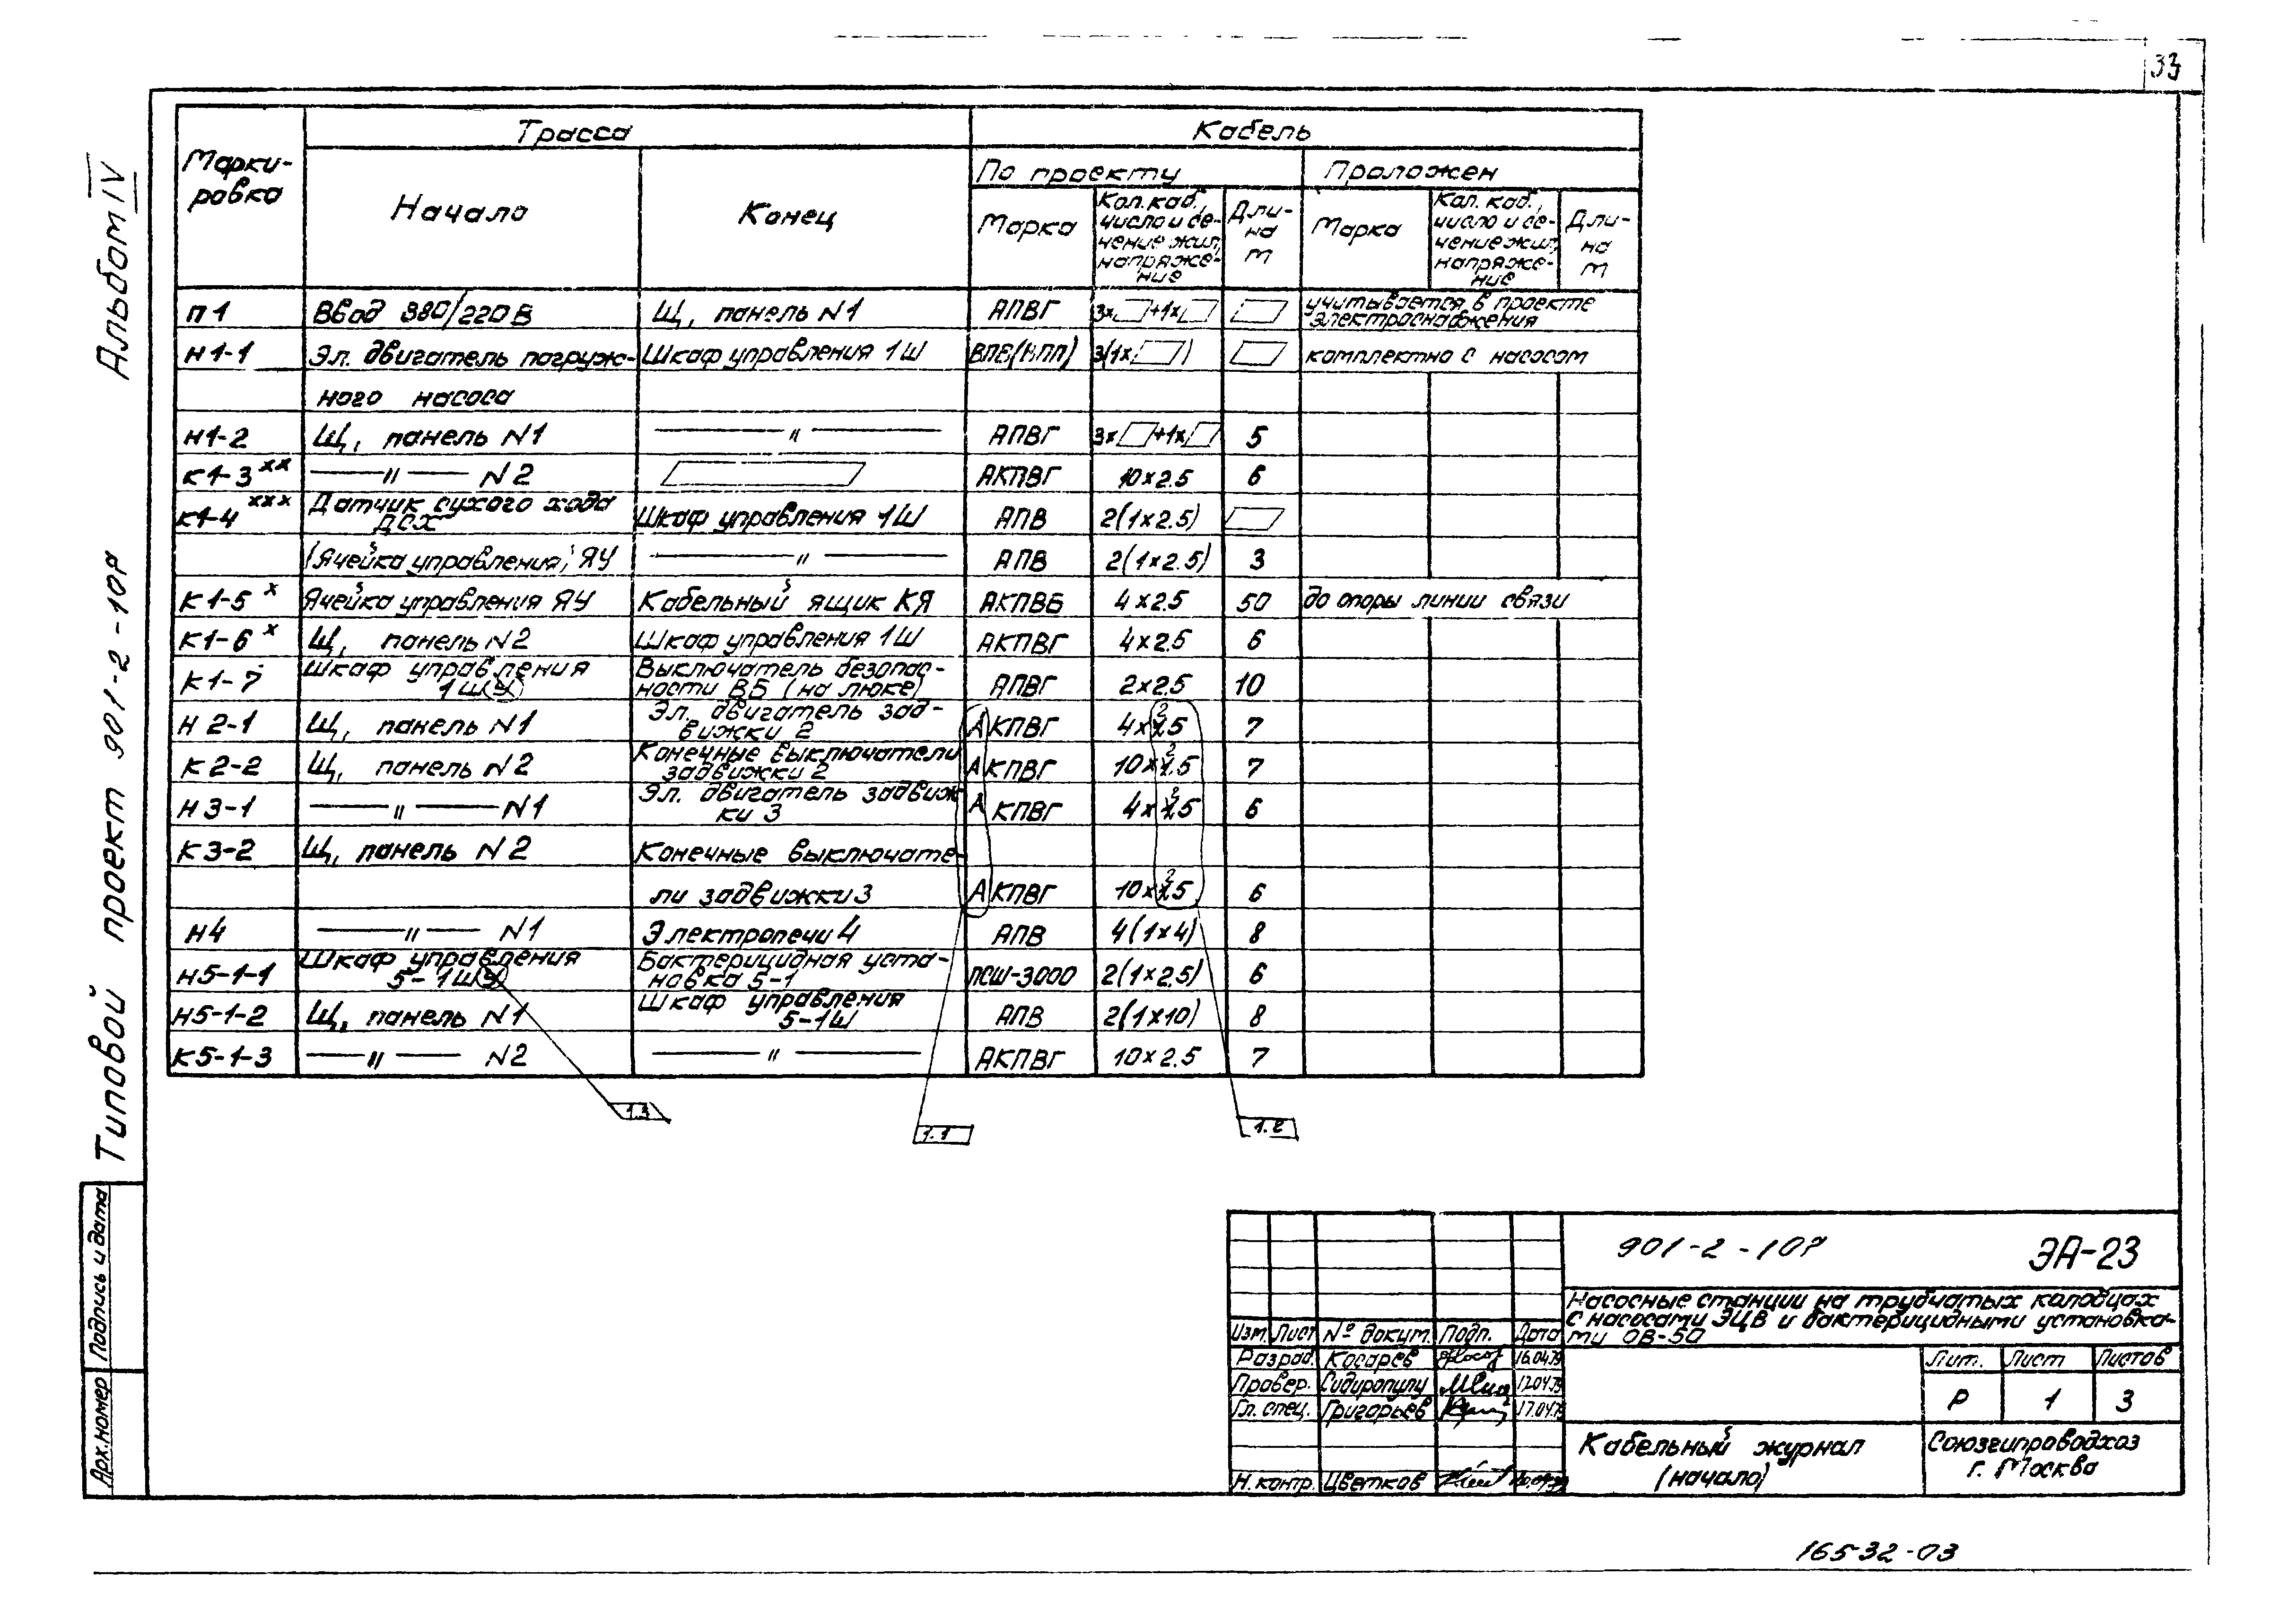 33
Альбом IV
Типовой проект 901-2-10Р
Подпись и дата
Арх. номер
Марки-
ровка
Трасса
Кабель
Начало
Конец
По проекту
Проложен
Марка
Кол. каб.,
число и се-
чение жил,
напряже-
ние
Дли-
на
м
Марка
Кол. каб.,
число и се-
чение жил,
напряже-
ние
Дли-
на
м
П1 Ввод 380/220В Щ, панель N1 АПВГ 3х +1х учитывается в проекте
электроснабжения
Н1-1 Эл. двигатель погруж- Шкаф управления 1Ш ВПВ(ВПП) 3(1х ) комплектно с насосом
ного насоса
Н1-2 Щ, панель N1 — " — АПВГ 3х +1х 5
К1-3 хх — " — N2 АКПВГ 10х2.5 6
К1-4 ххх Датчик сухого хода
ДСХ Шкаф управления 1Ш АПВ 2(1х2.5)
(Ячейка управления) ЯУ — " — АПВ 2(1х2.5) 3
К1-5 х Ячейка управления ЯУ Кабельный ящик КЯ АКПВБ 4х2.5 50 до опоры линии связи
К1-6 х Щ, панель N2 Шкаф управления 1Ш АКПВГ 4х2.5 6
К1-7 Шкаф управления
1Ш(У) Выключатель безопас-
ности ВБ (на люке) АПВГ 2х2.5 10
Н2-1 Щ, панель N1 Эл. двигатель зад-
вижки 2 АКПВГ 4х2.5 7
К2-2 Щ, панель N2 Конечные выключатели
задвижки 2 АКПВГ 10х2.5 7
Н3-1 — " — N1 Эл. двигатель задвиж-
ки 3 АКПВГ 4х2.5 6
К3-2 Щ, панель N2 Конечные выключате-
ли задвижки 3 АКПВГ 10х2.5 6
Н4 — " — N1 Электропечи 4 АПВ 4(1х4) 8
Н5-1-1 Шкаф управления
5-1Ш(У) Бактерицидная уста-
новка 5-1 ПСШ-3000 2(1х2.5) 6
Н5-1-2 Щ, панель N1 Шкаф управления
5-1Ш АПВ 2(1х10) 8
К5-1-3 — " — N2 — " — АКПВГ 10х2.5 7
1.3
1.1
1.2
901-2-10Р ЭА-23
Насосные станции на трубчатых колодцах
с насосами ЭЦВ и бактерицидными установка-
ми ОВ-50
Изм. Лист № докум. Подп. Дата
Разраб. Косарев 16.04.79
Провер. Сидиропулу 17.04.79
Гл. спец. Григорьев 17.04.79
Н. контр. Цветков
Лит. Лист Листов
Р 1 3
Кабельный журнал
(начало)
Союзгипроводхоз
г. Москва
16532-03